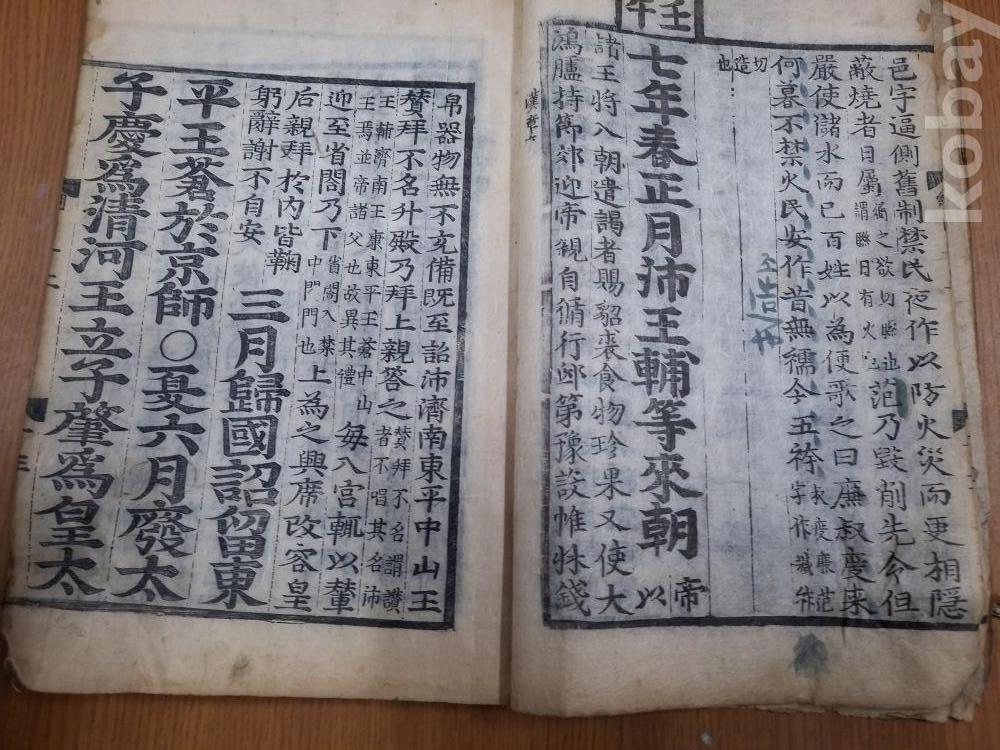 邑宇逼側舊制禁民夜作以防火災而更相隱
蔽燒者日屬屬之欲切聯也謂聯日有火也范乃毀削先令但
嚴使儲水而已百姓以為便歌之曰廉叔度來
何暮不禁火民安作昔無襦今五袴叔度廉范字作
切造也
壬午
七年春正月沛王輔等來朝帝以
諸王將入朝遣謁者賜貂裘食物珍果又使大
鴻臚持節郊迎帝親自脩行邸第豫設帷牀錢
漢章七
帛器物無不充備既至詔沛濟南東平中山王
贊拜不名升殿乃拜上親荅之贊拜不名謂讚者不唱其名沛
王輔濟南王康東平王蒼中山王焉並帝諸父也故異其禮每入宮輒以輦
迎至省閤乃下省閤入禁中門也上為之興席改容皇
后親拜於內皆鞠
躬辭謝不自安
三月歸國詔留東
平王蒼於京師〇夏六月廢太
子慶爲清河王立子肇爲皇太
kobay